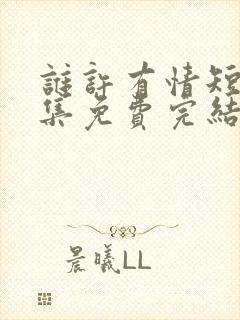 誰許有情短
集免費完結
晨曦LL